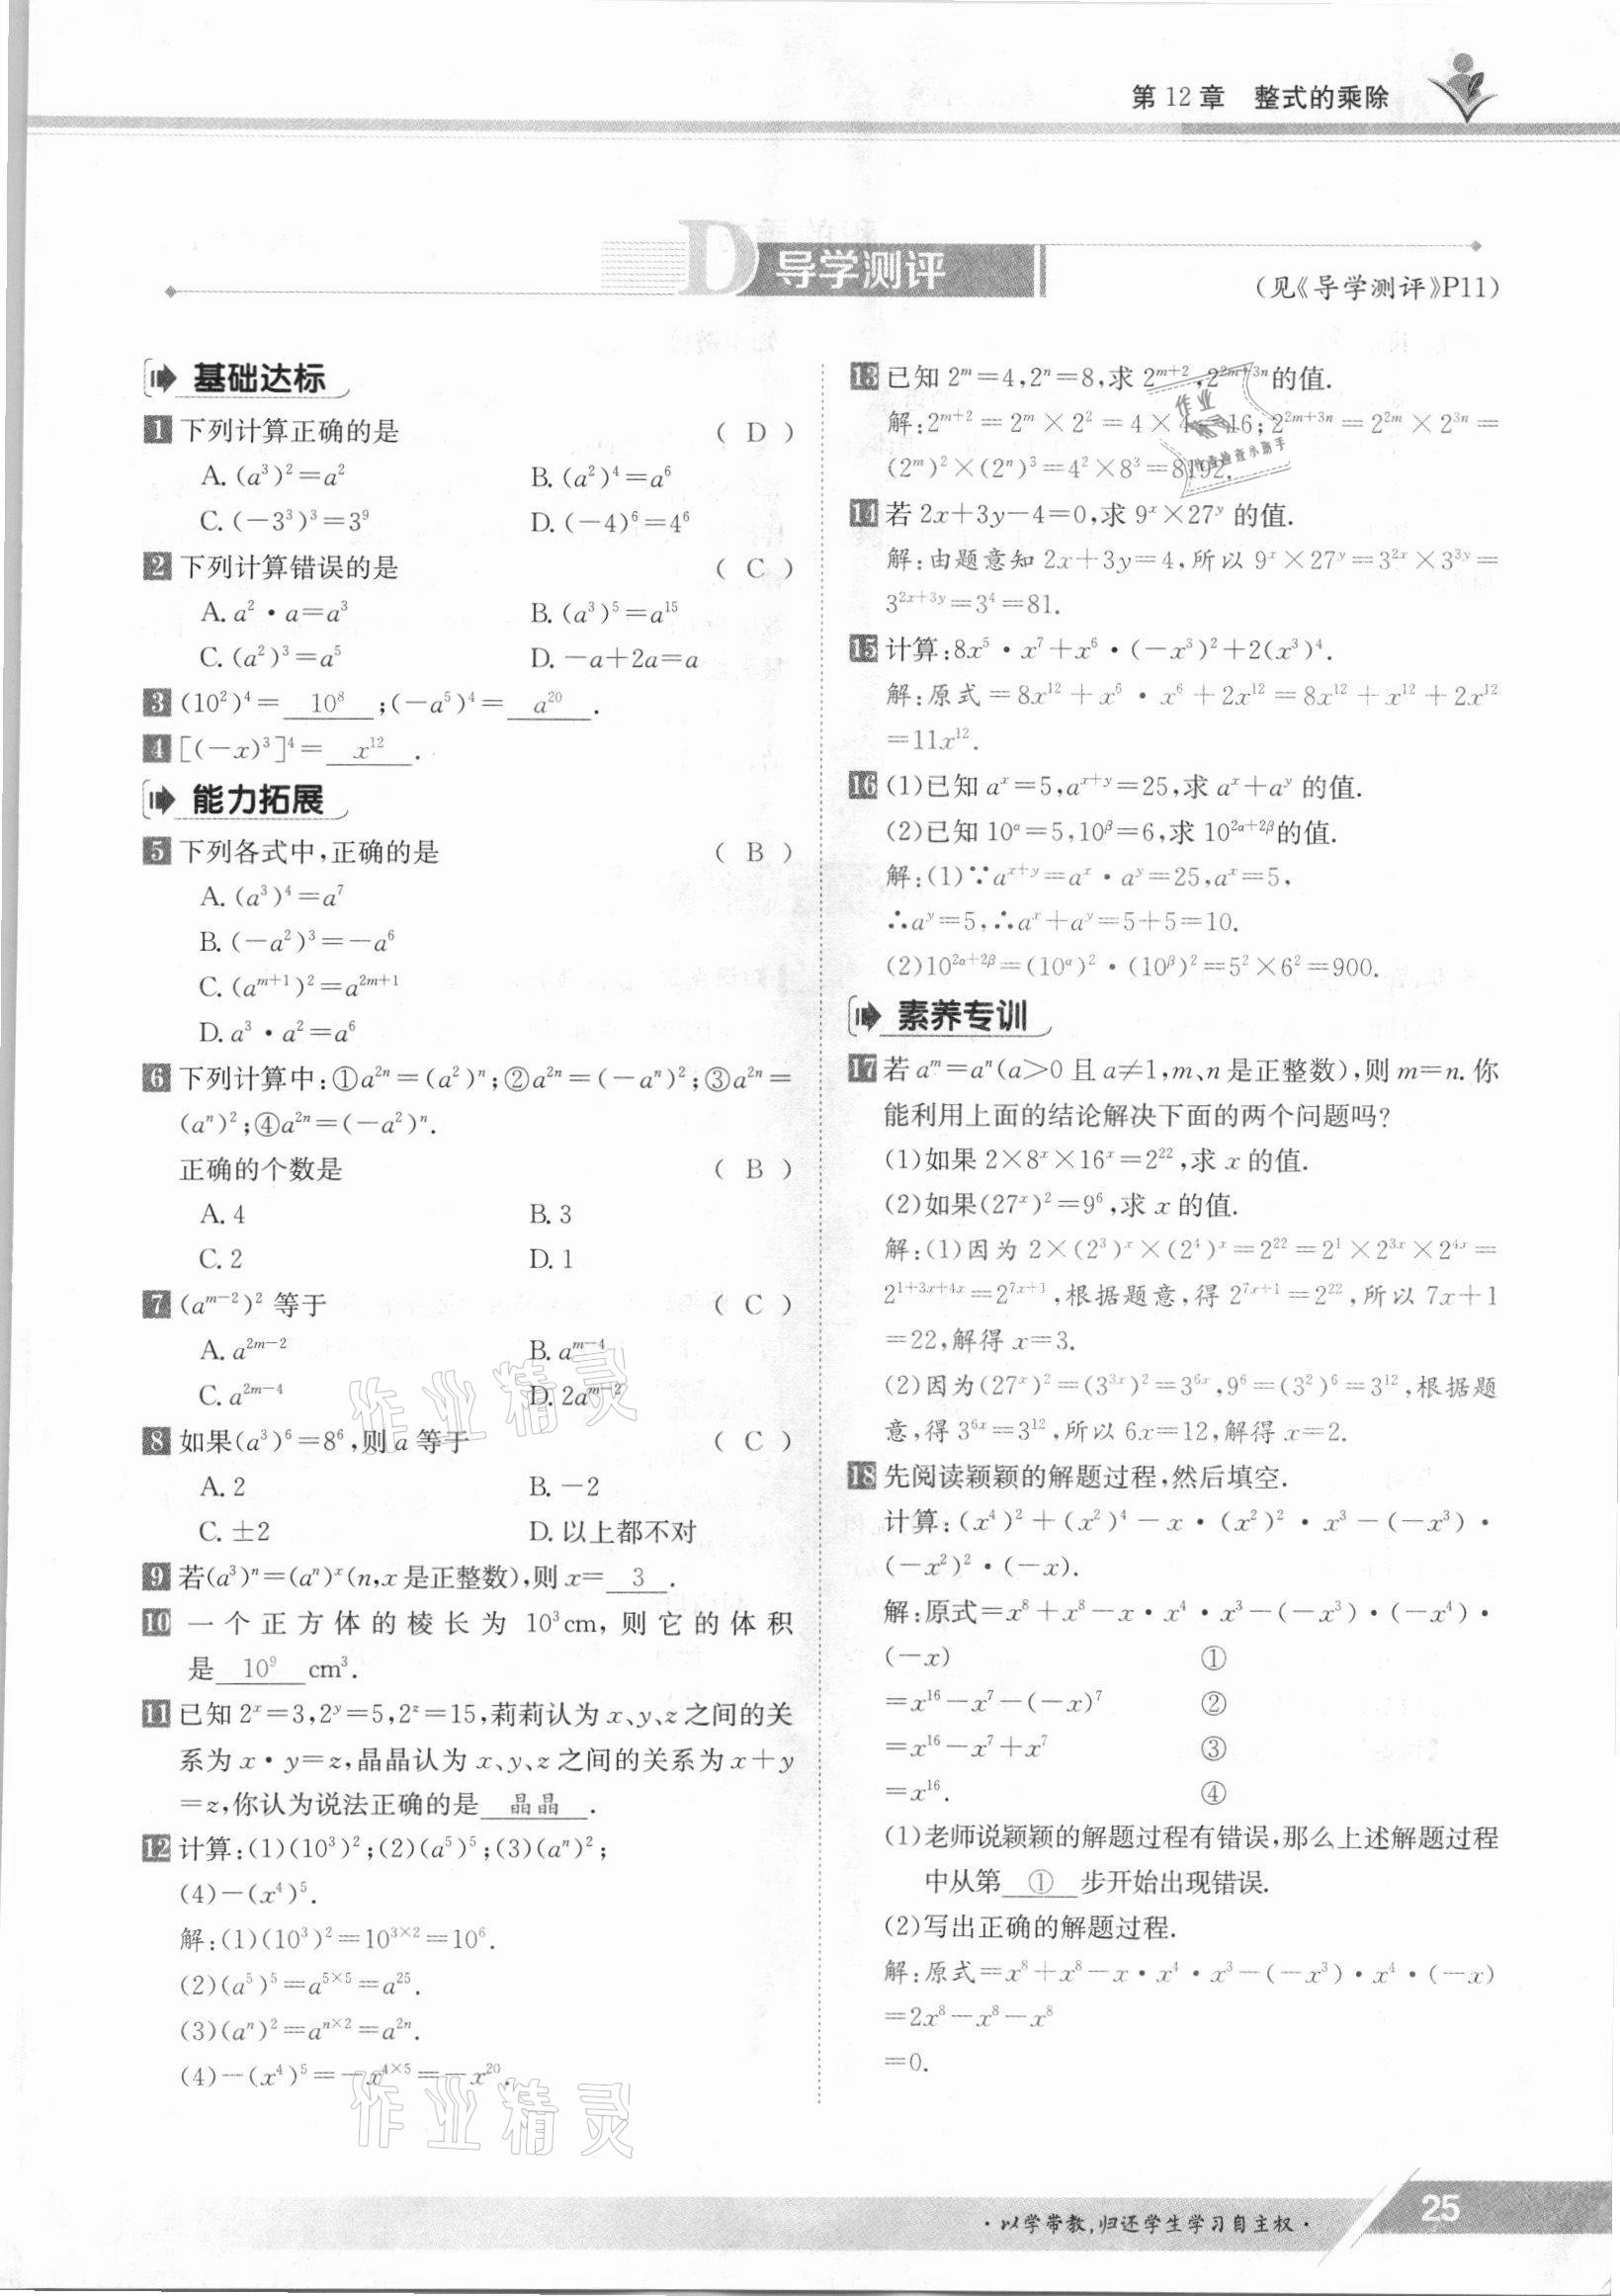 第 12 章 整式的乘除
D 导学测评
(见《导学测评》P11)
基础达标
1 下列计算正确的是 ( D )
A. (a³)²=a² B. (a²)⁴=a⁶
C. (-3³)³=3⁹ D. (-4)⁶=4⁶
2 下列计算错误的是 ( C )
A. a²·a=a³ B. (a³)⁵=a¹⁵
C. (a²)³=a⁵ D. -a+2a=a
3 (10²)⁴= 10⁸ ;(-a⁵)⁴= a²⁰ .
4 [(-x)³]⁴= x¹² .
能力拓展
5 下列各式中,正确的是 ( B )
A. (a³)⁴=a⁷
B. (-a²)³=-a⁶
C. (a^{m+1})²=a^{2m+1}
D. a³·a²=a⁶
6 下列计算中:①a^{2n}=(a²)^n;②a^{2n}=(-a^n)²;③a^{2n}=
(a^n)²;④a^{2n}=(-a²)^n.
正确的个数是 ( B )
A. 4 B. 3
C. 2 D. 1
7 (a^{m-2})² 等于 ( C )
A. a^{2m-2} B. a^{m-4}
C. a^{2m-4} D. 2a^{m-2}
8 如果(a³)⁶=8⁶,则 a 等于 ( C )
A. 2 B. -2
C. ±2 D. 以上都不对
9 若(a³)^n=(a^n)^x(n,x 是正整数),则 x= 3 .
10 一个正方体的棱长为 10³cm,则它的体积
是 10⁹ cm³.
11 已知 2^x=3,2^y=5,2^z=15,莉莉认为 x、y、z 之间的关
系为 x·y=z,晶晶认为 x、y、z 之间的关系为 x+y
=z,你认为说法正确的是 晶晶 .
12 计算:(1)(10³)²;(2)(a⁵)⁵;(3)(a^n)²;
(4)-(x⁴)⁵.
解:(1)(10³)²=10^{3×2}=10⁶.
(2)(a⁵)⁵=a^{5×5}=a²⁵.
(3)(a^n)²=a^{n×2}=a^{2n}.
(4)-(x⁴)⁵=-x^{4×5}=-x²⁰.
13 已知 2^m=4,2^n=8,求 2^{m+2},2^{2m+3n}的值.
解:2^{m+2}=2^m×2²=4×4=16;2^{2m+3n}=2^{2m}×2^{3n}=
(2^m)²×(2^n)³=4²×8³=8192.
14 若 2x+3y-4=0,求 9^x×27^y 的值.
解:由题意知 2x+3y=4,所以 9^x×27^y=3^{2x}×3^{3y}=
3^{2x+3y}=3⁴=81.
15 计算:8x⁵·x⁷+x⁶·(-x³)²+2(x³)⁴.
解:原式=8x¹²+x⁶·x⁶+2x¹²=8x¹²+x¹²+2x¹²
=11x¹².
16 (1)已知 a^x=5,a^{x+y}=25,求 a^x+a^y 的值.
(2)已知 10^α=5,10^β=6,求 10^{2α+2β}的值.
解:(1)∵a^{x+y}=a^x·a^y=25,a^x=5,
∴a^y=5,∴a^x+a^y=5+5=10.
(2)10^{2α+2β}=(10^α)²·(10^β)²=5²×6²=900.
素养专训
17 若 a^m=a^n(a>0 且 a≠1,m、n 是正整数),则 m=n. 你
能利用上面的结论解决下面的两个问题吗?
(1)如果 2×8^x×16^x=2²²,求 x 的值.
(2)如果(27^x)²=9⁶,求 x 的值.
解:(1)因为 2×(2³)^x×(2⁴)^x=2²²=2¹×2^{3x}×2^{4x}=
2^{1+3x+4x}=2^{7x+1},根据题意,得 2^{7x+1}=2²²,所以 7x+1
=22,解得 x=3.
(2)因为(27^x)²=(3^{3x})²=3^{6x},9⁶=(3²)⁶=3¹²,根据题
意,得 3^{6x}=3¹²,所以 6x=12,解得 x=2.
18 先阅读颖颖的解题过程,然后填空.
计算:(x⁴)²+(x²)⁴-x·(x²)²·x³-(-x³)·
(-x²)²·(-x).
解:原式=x⁸+x⁸-x·x⁴·x³-(-x³)·(-x⁴)·
(-x) ①
=x¹⁶-x⁷-(-x)⁷ ②
=x¹⁶-x⁷+x⁷ ③
=x¹⁶. ④
(1)老师说颖颖的解题过程有错误,那么上述解题过程
中从第 ① 步开始出现错误.
(2)写出正确的解题过程.
解:原式=x⁸+x⁸-x·x⁴·x³-(-x³)·x⁴·(-x)
=2x⁸-x⁸-x⁸
=0.
作业精灵
作业精灵
作业
作业检查小助手
·以学带教,归还学生学习自主权·
25